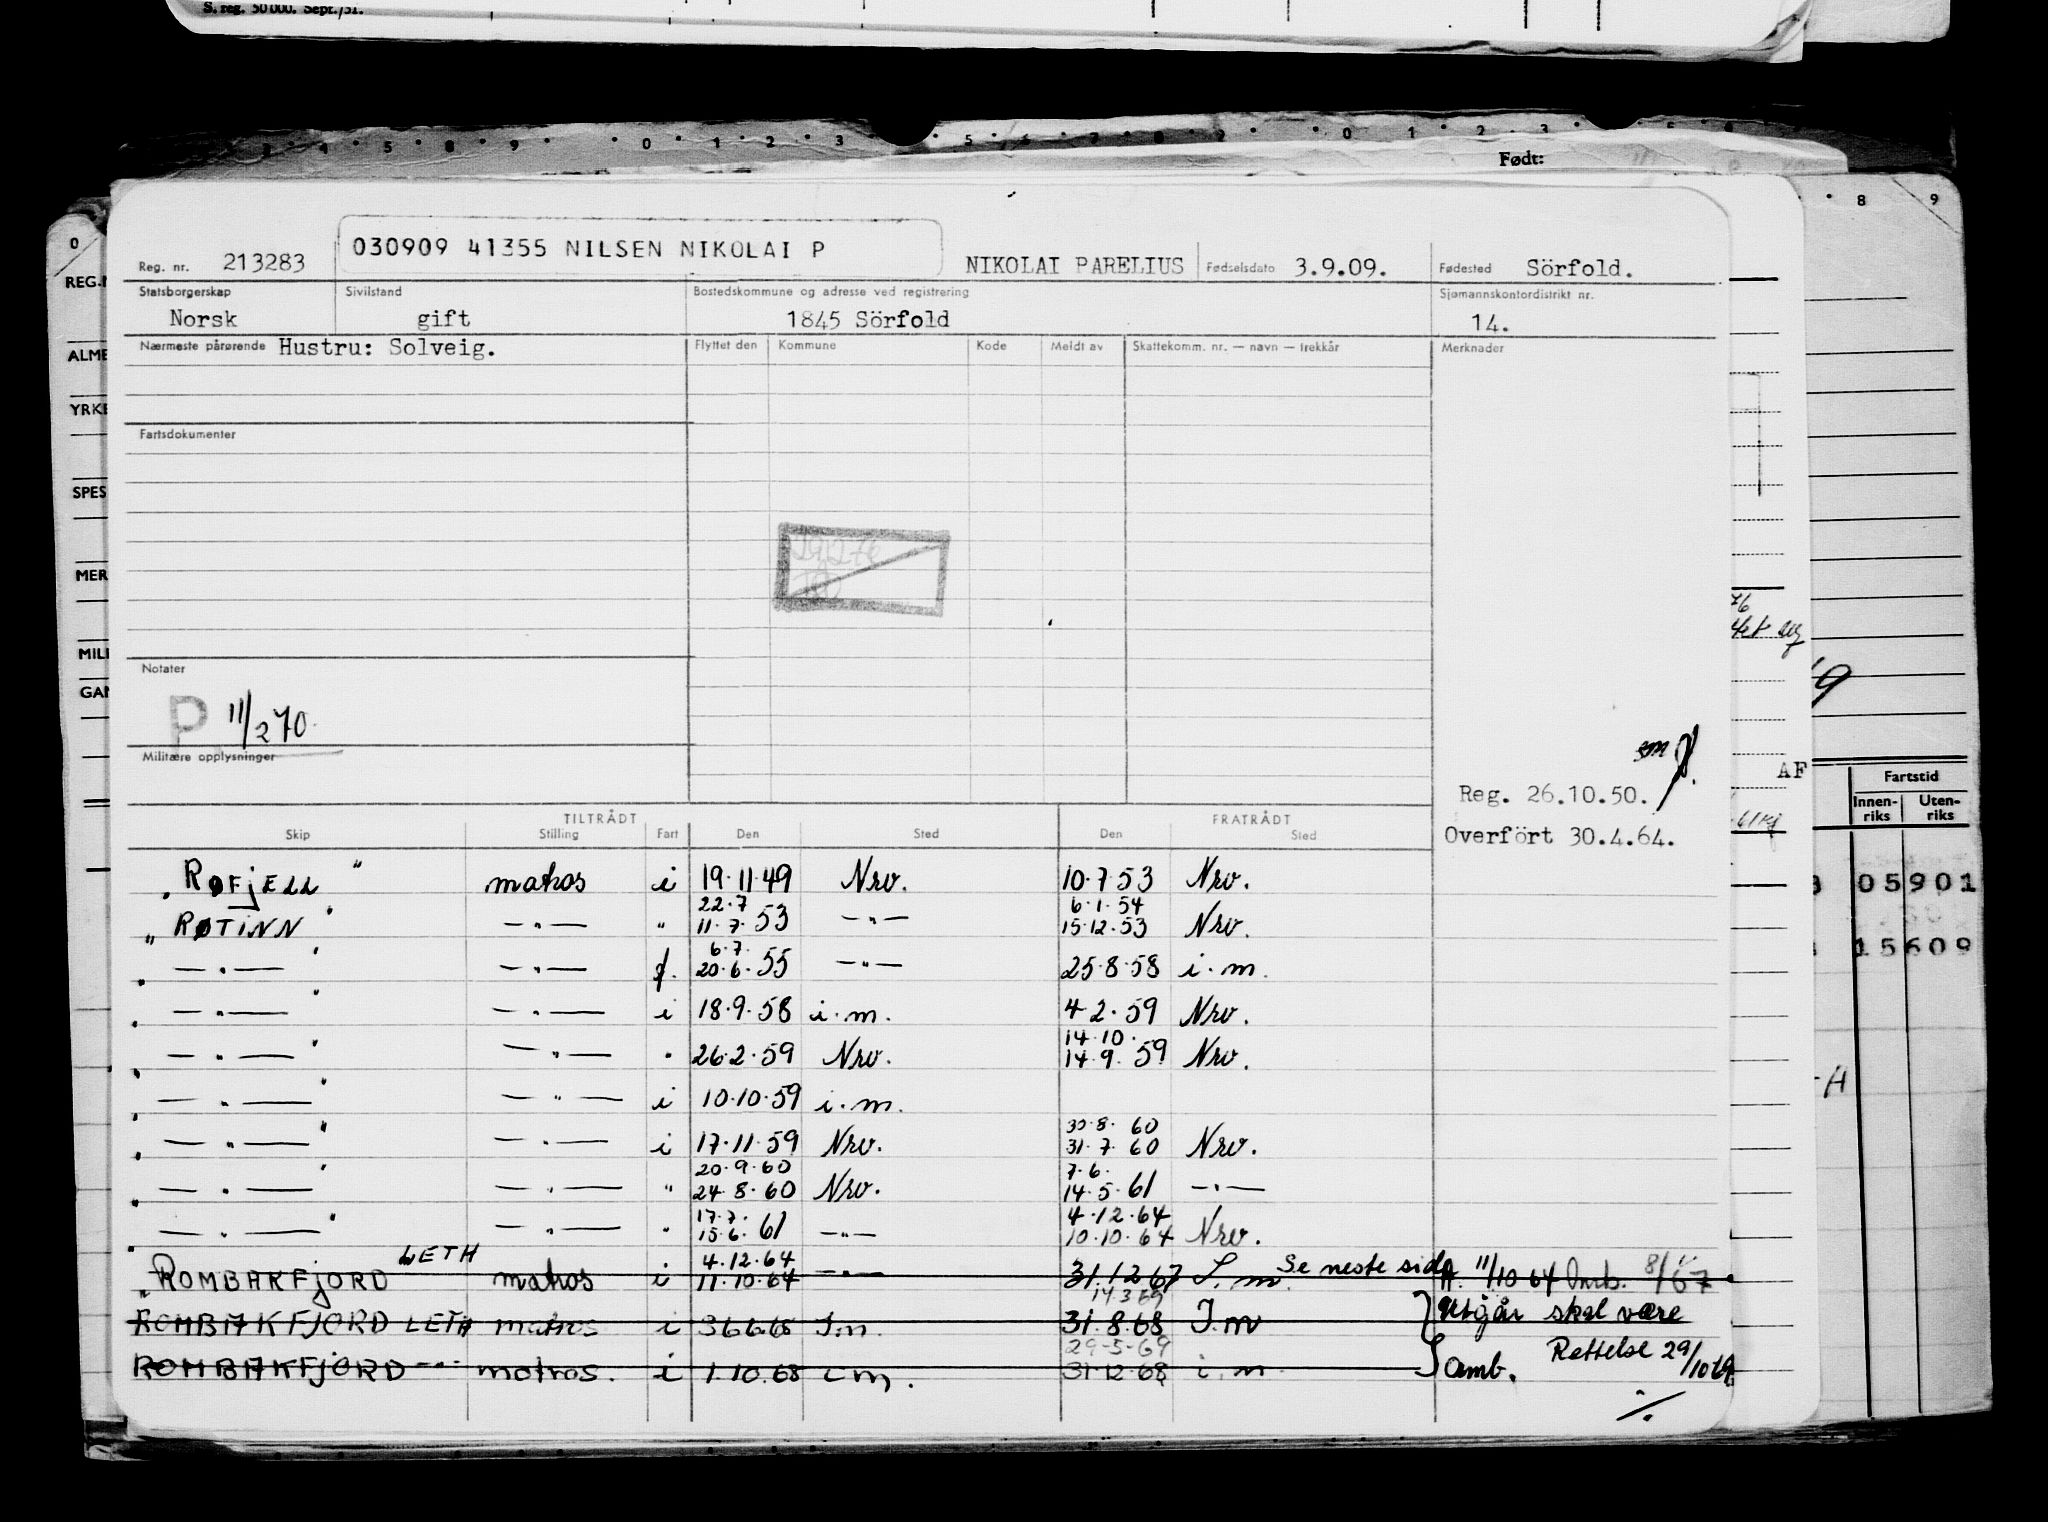 S. reg. 50 000. Sept./51.
3 4 5 8 9 0 1 2 3 5 6 7 8 9 0 1 2 3 5 6
Født:
0 8 9
030909 41355 NILSEN NIKOLAI P
Reg. nr. 213283 NIKOLAI PARELIUS Fødselsdato 3.9.09. Fødested Sörfold.
Statsborgerskap Sivilstand Bostedskommune og adresse ved registrering Sjømannskontordistrikt nr.
Norsk gift 1845 Sörfold 14.
Nærmeste pårørende Hustru: Solveig. Flyttet den Kommune Kode Meldt av Skattekomm. nr. — navn — trekkår Merknader
Fartsdokumenter
Notater
P 11/2 70.
Militære opplysninger
Reg. 26.10.50.
Overfört 30.4.64.
TILTRÅDT FRATRÅDT
Skip Stilling Fart Den Sted Den Sted
„ RØFJELL " matros i 19.11.49 Nrv. 10.7.53 Nrv.
22.7 6.1.54
„ RØTINN " —„— " 11.7.53 —„— 15.12.53 Nrv.
6.7.
„ —„— " —„— f. 20.6.55 —„— 25.8.58 i.m.
„ —„— " —„— i 18.9.58 i.m. 4.2.59 Nrv.
14.10.
„ —„— " —„— " 26.2.59 Nrv. 14.9.59 Nrv.
„ —„— " —„— i 10.10.59 i.m.
30.8.60
„ —„— " —„— i 17.11.59 Nrv. 31.7.60 Nrv.
20.9.60 7.6.
„ —„— " —„— " 24.8.60 Nrv. 14.5.61 —„—
17.7. 4.12.64
„ —„— " —„— " 15.6.61 —„— 10.10.64 Nrv.
LETH 4.12.64 Se neste side
„ ROMBAKFJORD matros i 11.10.64 —„— 31.12.67 I.m. A. 11/10 64 Omb. 8/11 67
14 3 69
ROMBAKFJORD LETH matros i I.m. 31.8.68 I.m Utgår skal være
29-5-69 Rettelse 29/10 69
ROMBAKFJORD —„— matros. i 1.10.68 i m. 31.12.68 i.m. omb.
./.
REG.N
ALME
YRKE
SPES
MER
MILI
GAN
AF
Fartstid
Innen-riks Uten-riks
05901
15609